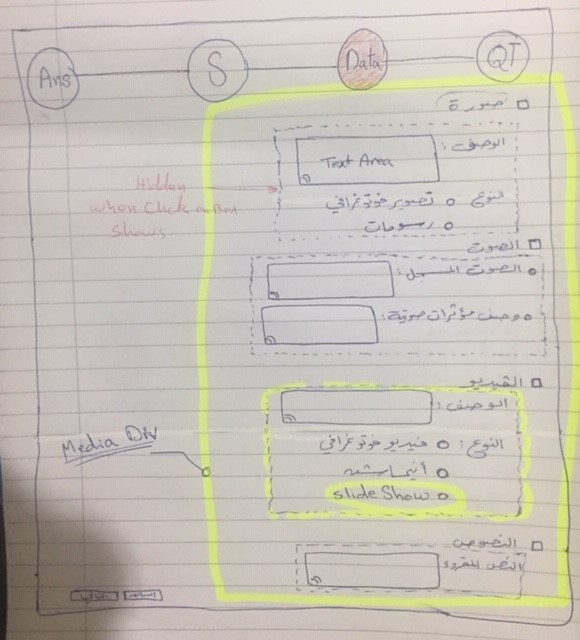 Ans S Data QT
صورة
الوصف:
Text Area
النوع تصوير فوتوغرافي
رسومات
Hidden
when click on Box
Shows
الصوت
الصوت المسجل:
وصف مؤثرات صوتية:
الفيديو
الوصف:
النوع: فيديو فوتوغرافي
slide Show
Media Div
النصوص
النص المقروء